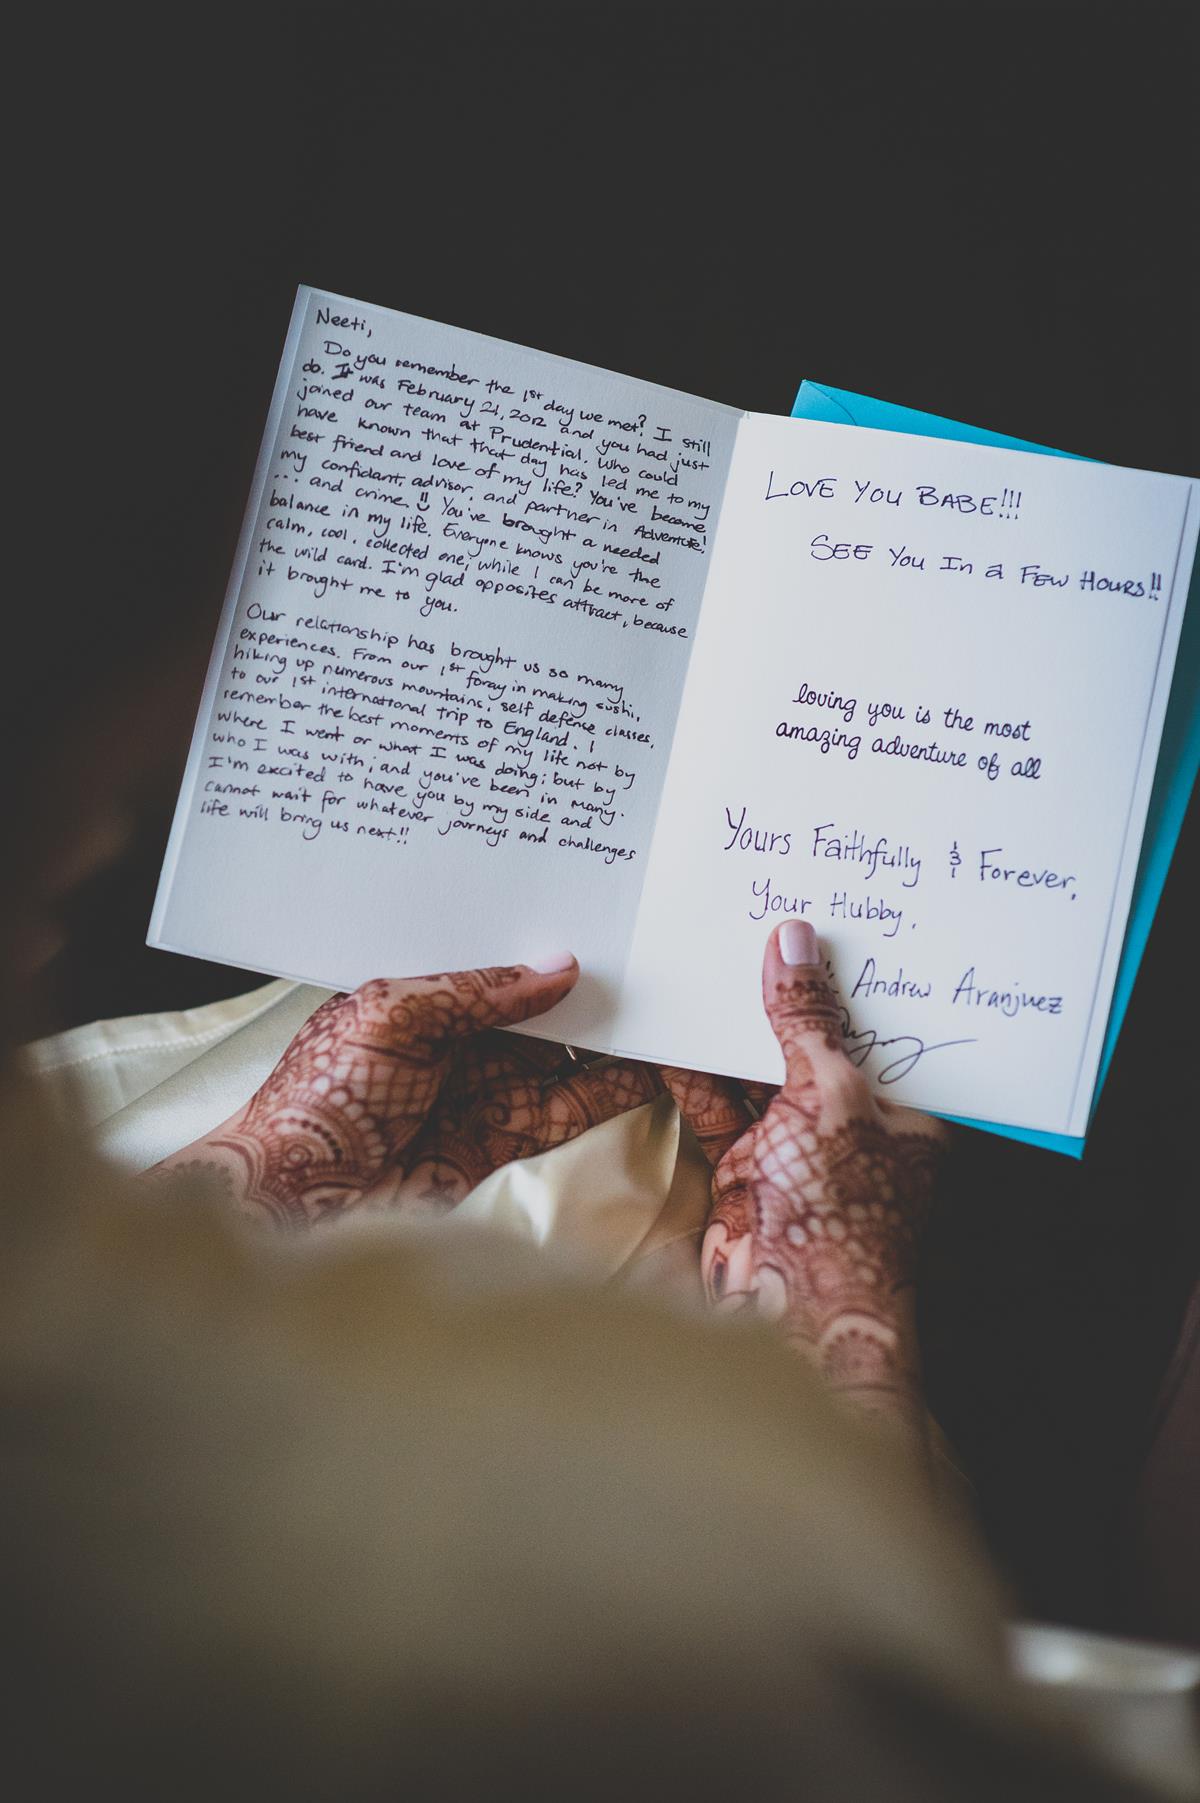 Neeti,
Do you remember the 1st day we met? I still
do. It was February 21, 2012 and you had just
joined our team at Prudential. Who could
have known that that day has led me to my
best friend and love of my life? You've become
my confidant, advisor, and partner in Adventure!
... and crime!! You've brought a needed
balance in my life. Everyone knows you're the
calm, cool, collected one; while I can be more of
the wild card. I'm glad opposites attract, because
it brought me to you.
Our relationship has brought us so many
experiences. From our 1st foray in making sushi,
hiking up numerous mountains, self defense classes,
to our 1st international trip to England. I
remember the best moments of my life not by
where I went or what I was doing; but by
who I was with; and you've been in many.
I'm excited to have you by my side and
cannot wait for whatever journeys and challenges
life will bring us next!!
LOVE YOU BABE!!!
SEE YOU IN a FEW HOURS!!
loving you is the most
amazing adventure of all
Yours Faithfully & Forever,
Your Hubby,
Andrew Aranjuez